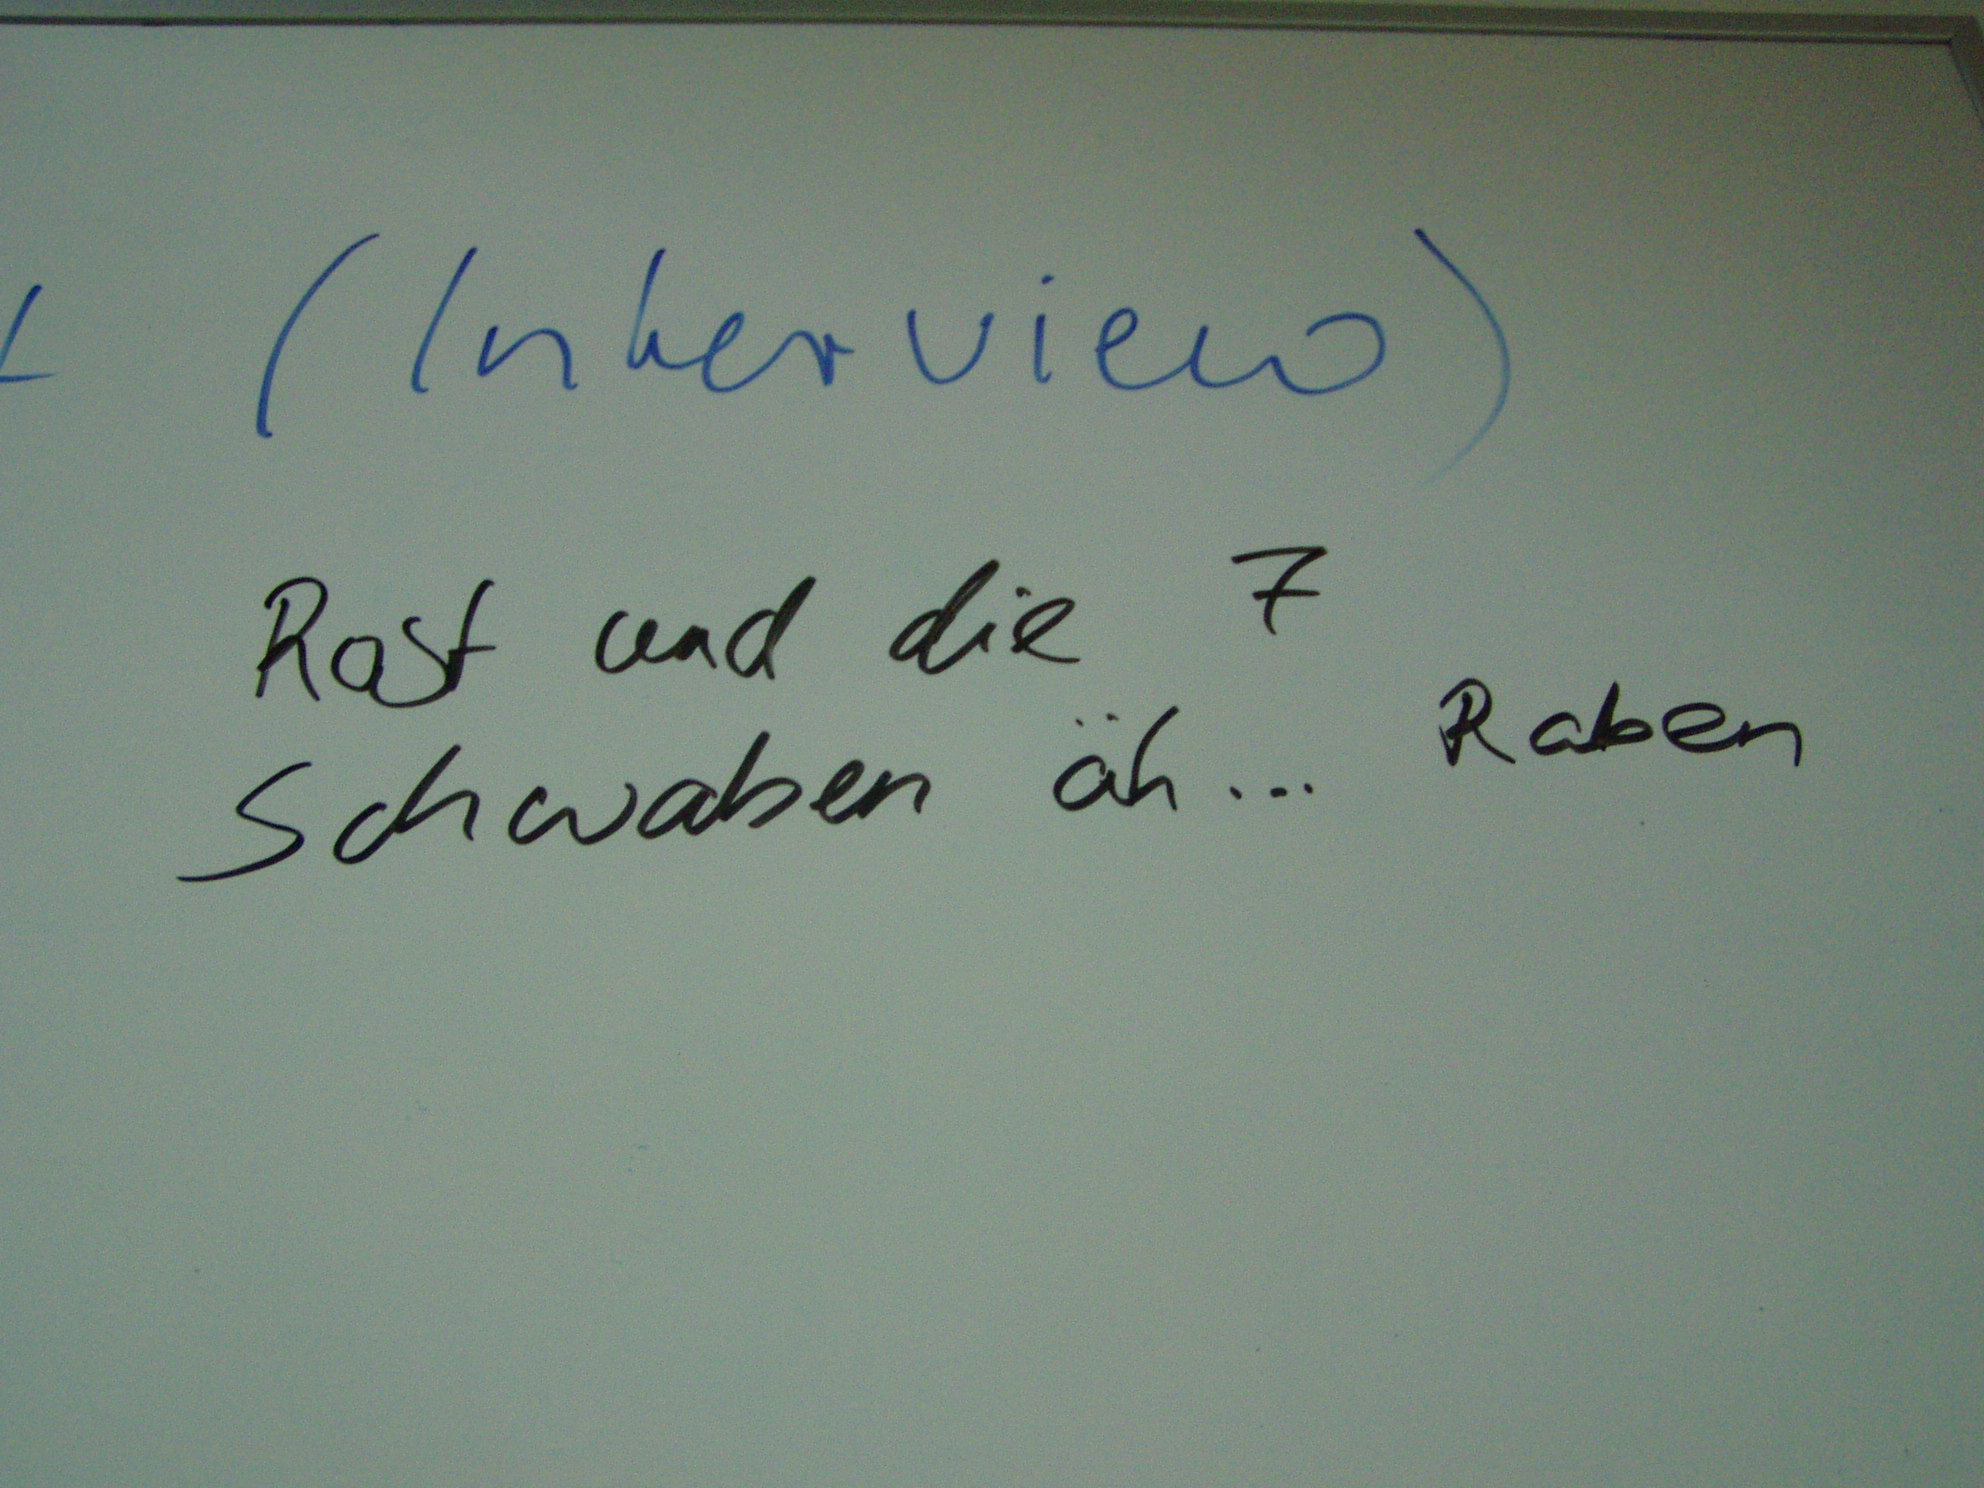 (Interview)
Rast und die 7
Schwaben äh... Raben